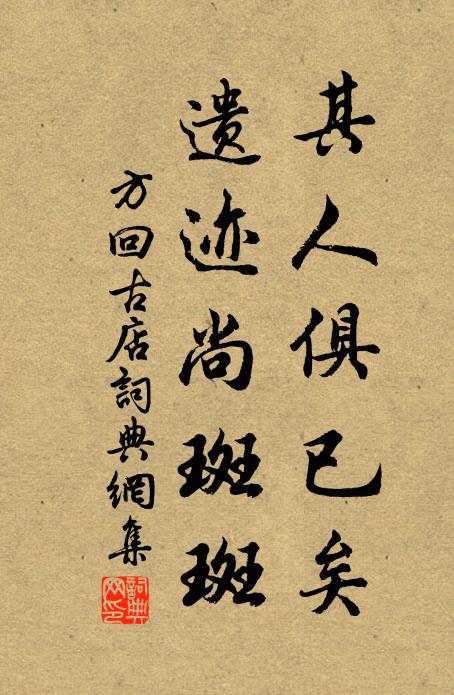 其人俱已矣
遗迹尚斑斑
方回古店詞典網集
詞典网印